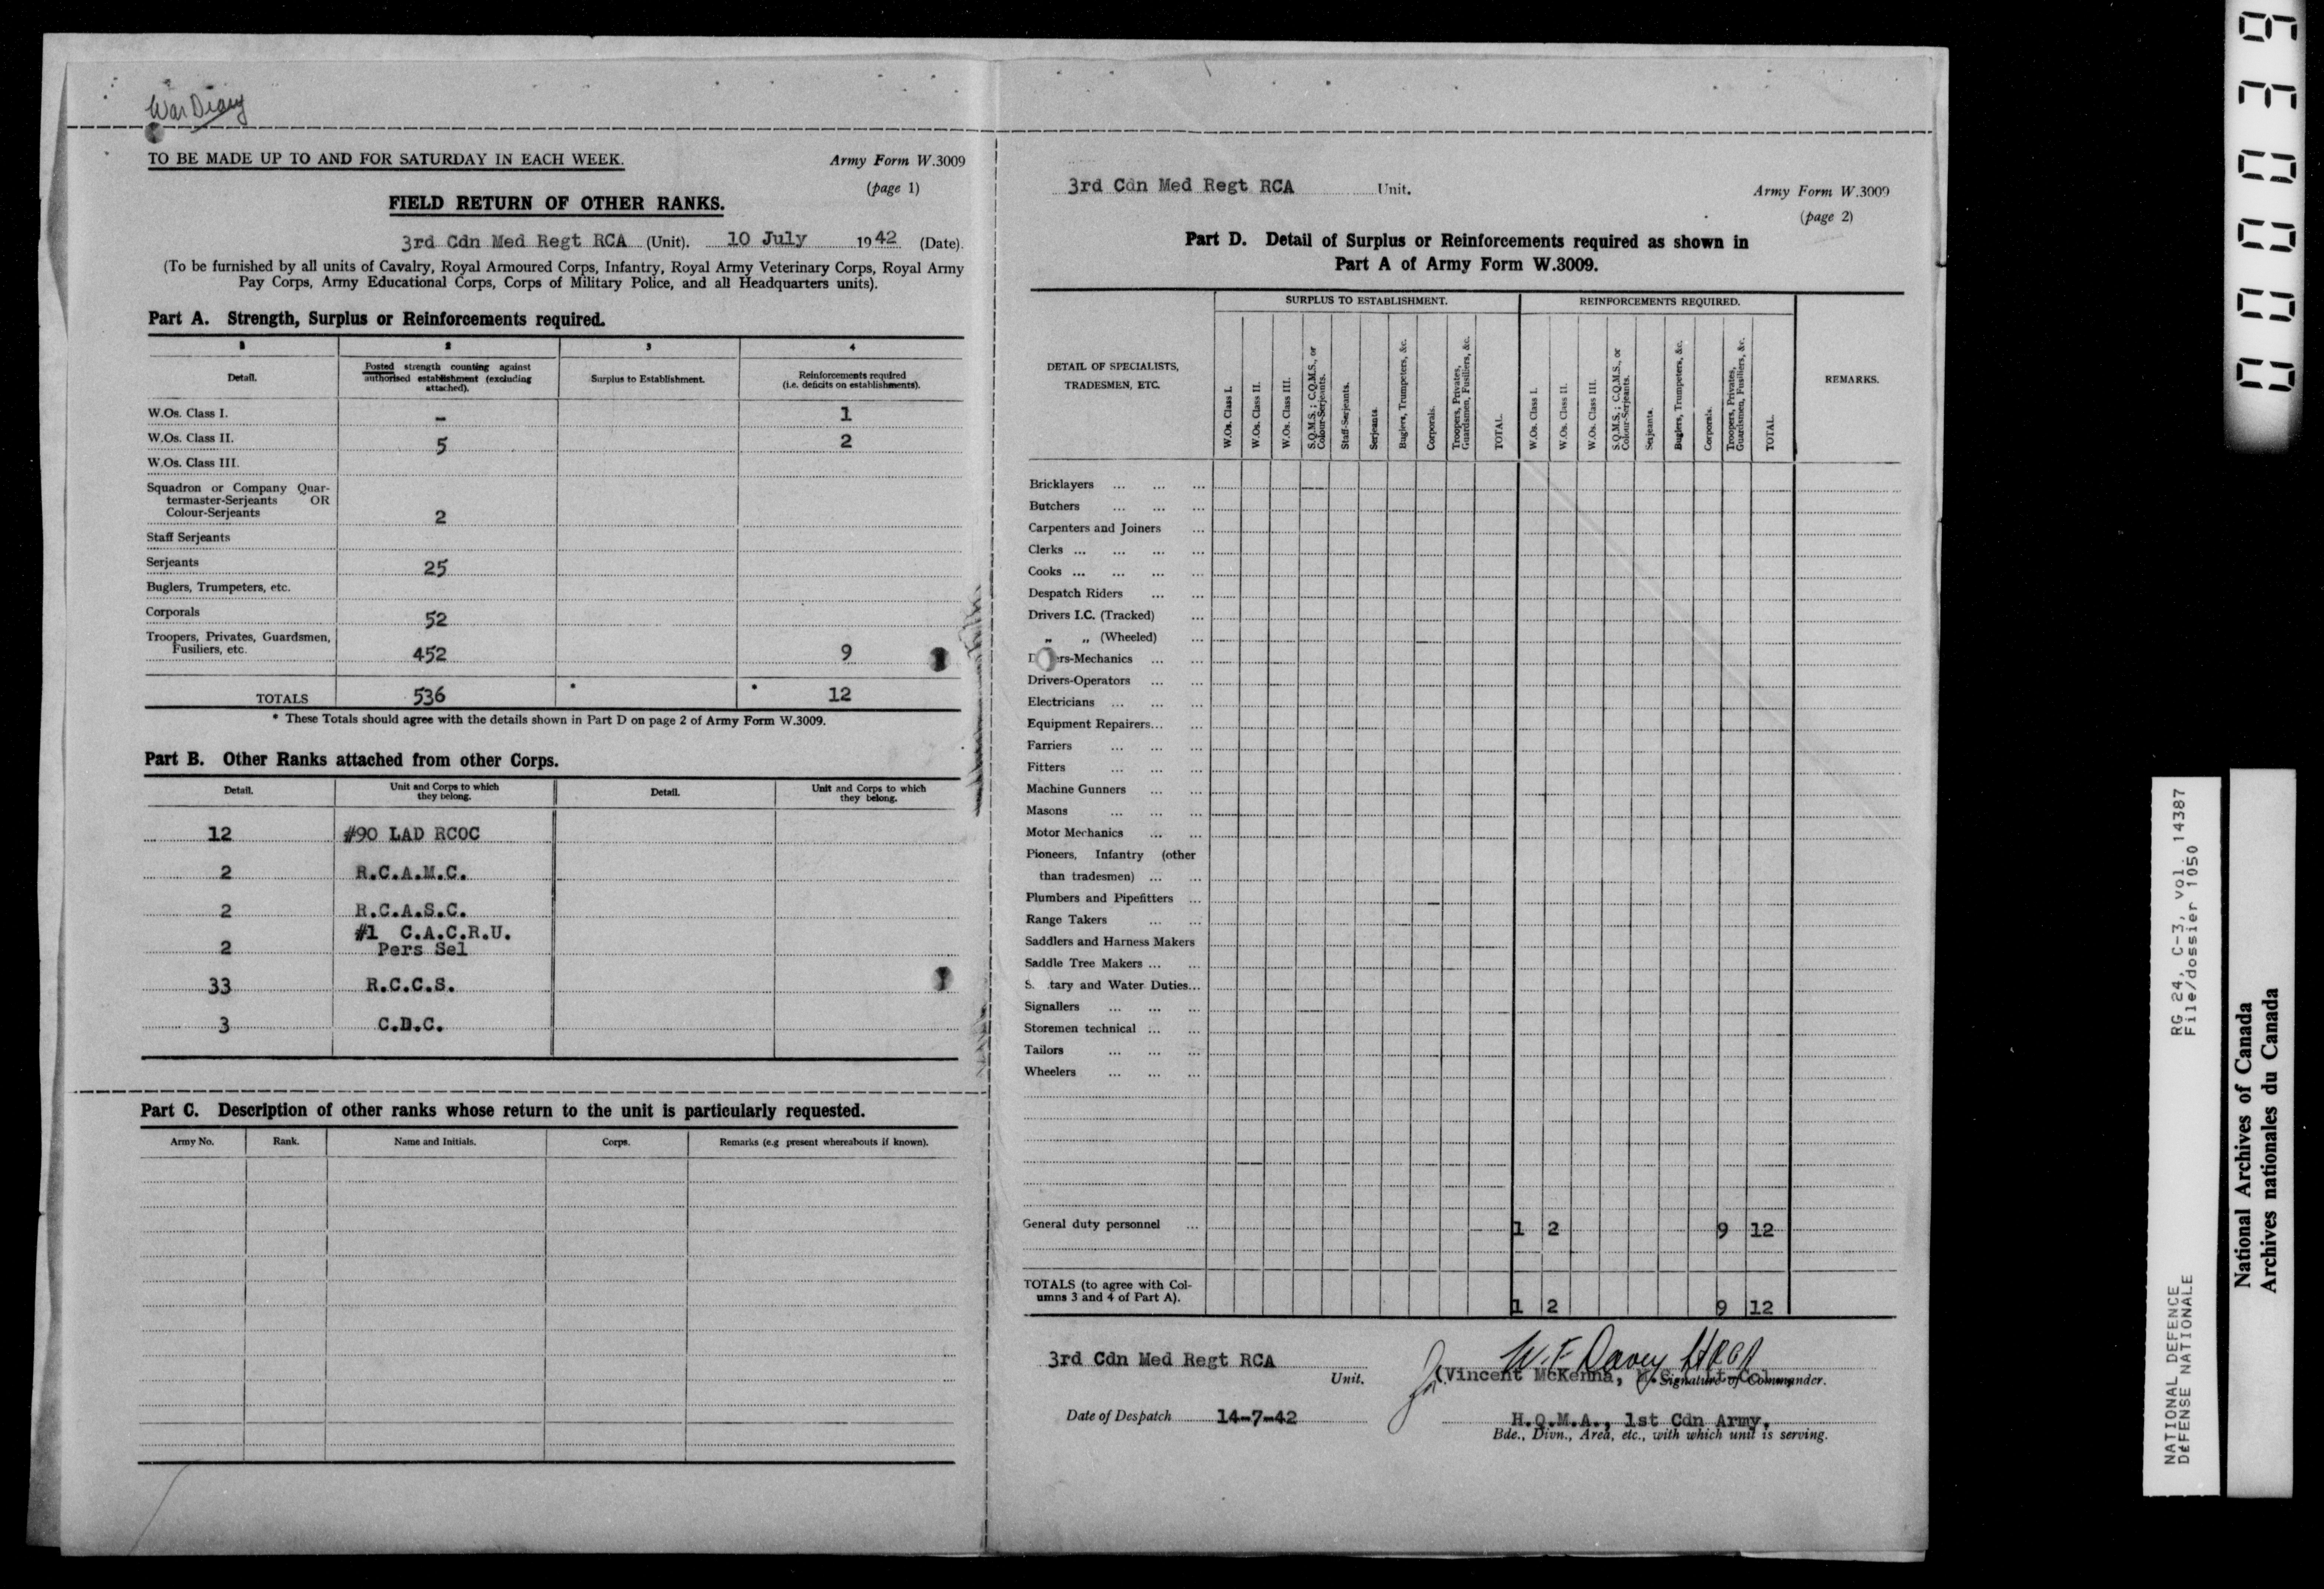 War Diary
TO BE MADE UP TO AND FOR SATURDAY IN EACH WEEK.
Army Form W.3009
(page 1)
FIELD RETURN OF OTHER RANKS.
3rd Cdn Med Regt RCA (Unit). 10 July 1942 (Date).
(To be furnished by all units of Cavalry, Royal Armoured Corps, Infantry, Royal Army Veterinary Corps, Royal Army
Pay Corps, Army Educational Corps, Corps of Military Police, and all Headquarters units).
Part A. Strength, Surplus or Reinforcements required.
1 2 3 4
Detail. Posted strength counting against authorised establishment (excluding attached). Surplus to Establishment. Reinforcements required (i.e. deficits on establishments).
W.Os. Class I. - 1
W.Os. Class II. 5 2
W.Os. Class III.
Squadron or Company Quar-
termaster-Serjeants OR
Colour-Serjeants 2
Staff Serjeants
Serjeants 25
Buglers, Trumpeters, etc.
Corporals 52
Troopers, Privates, Guardsmen,
Fusiliers, etc. 452 9
TOTALS 536 * * 12
* These Totals should agree with the details shown in Part D on page 2 of Army Form W.3009.
Part B. Other Ranks attached from other Corps.
Detail. Unit and Corps to which they belong. Detail. Unit and Corps to which they belong.
12 #90 LAD RCOC
2 R.C.A.M.C.
2 R.C.A.S.C.
#1 C.A.C.R.U.
2 Pers Sel
33 R.C.C.S.
3 C.D.C.
Part C. Description of other ranks whose return to the unit is particularly requested.
Army No. Rank. Name and Initials. Corps. Remarks (e.g present whereabouts if known).
3rd Cdn Med Regt RCA Unit.
Army Form W.3009
(page 2)
Part D. Detail of Surplus or Reinforcements required as shown in
Part A of Army Form W.3009.
DETAIL OF SPECIALISTS,
TRADESMEN, ETC.
SURPLUS TO ESTABLISHMENT.
W.Os. Class I.
W.Os. Class II.
W.Os. Class III.
S.Q.M.S.; C.Q.M.S., or Colour-Serjeants.
Staff-Serjeants.
Serjeants.
Buglers, Trumpeters, &c.
Corporals.
Troopers, Privates, Guardsmen, Fusiliers, &c.
TOTAL.
REINFORCEMENTS REQUIRED.
W.Os. Class I.
W.Os. Class II.
W.Os. Class III.
S.Q.M.S.; C.Q.M.S., or Colour-Serjeants.
Serjeants.
Buglers, Trumpeters, &c.
Corporals.
Troopers, Privates, Guardsmen, Fusiliers, &c.
TOTAL.
REMARKS.
Bricklayers ... ... ...
Butchers ... ... ...
Carpenters and Joiners ...
Clerks ... ... ... ...
Cooks ... ... ... ...
Despatch Riders ... ...
Drivers I.C. (Tracked) ...
„ „ (Wheeled) ...
D ers-Mechanics ... ...
Drivers-Operators ... ...
Electricians ... ... ...
Equipment Repairers... ...
Farriers ... ... ...
Fitters ... ... ...
Machine Gunners ... ...
Masons ... ... ...
Motor Mechanics ... ...
Pioneers, Infantry (other
than tradesmen) ... ...
Plumbers and Pipefitters ...
Range Takers ... ...
Saddlers and Harness Makers
Saddle Tree Makers ... ...
S. tary and Water Duties...
Signallers ... ... ...
Storemen technical ... ...
Tailors ... ... ...
Wheelers ... ... ...
General duty personnel ... 1 2 9 12
TOTALS (to agree with Col-
umns 3 and 4 of Part A). 1 2 9 12
3rd Cdn Med Regt RCA
Unit.
W. F. Davey
(Vincent McKenna, Lt-Col.,
Signature of Commander.
Date of Despatch 14-7-42
H.Q.M.A., 1st Cdn Army,
Bde., Divn., Area, etc., with which unit is serving.
000039
RG 24, C-3, vol. 14387
File/dossier 1050
NATIONAL DEFENCE
DéFENSE NATIONALE
National Archives of Canada
Archives nationales du Canada